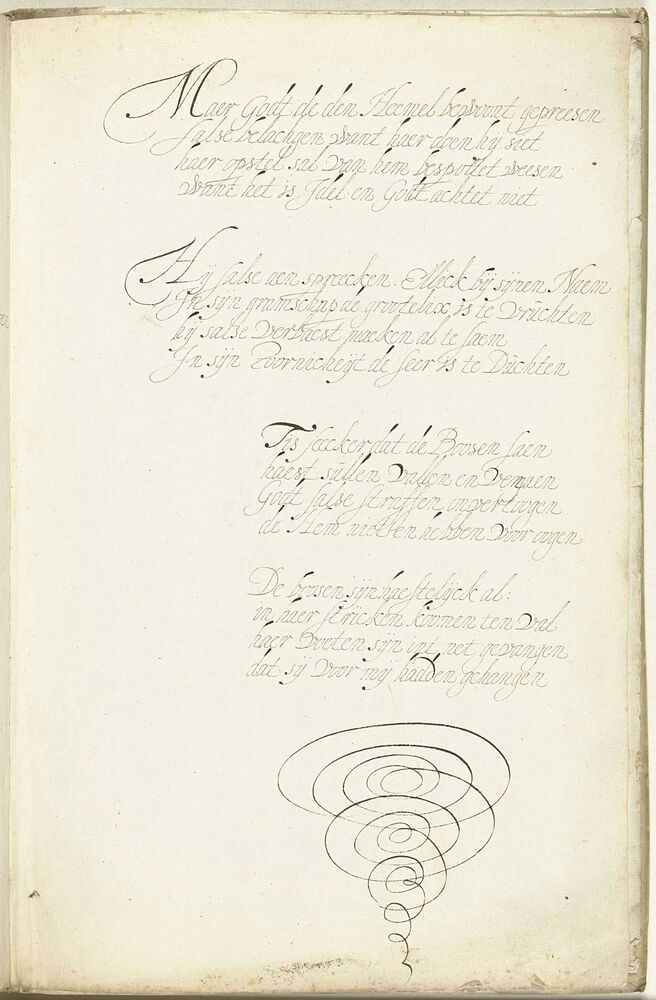 Maer Godt de den Heemel bewoont gepreesen
salse belachgen want haer doen hij siet
haer opstel sal van hem bespottet weesen
want het is Idel en Godt achtet niet
Hij salse aen spreecken. Ellick bij sijnen Naem
In sijn gramschap de grootelix is te vruchten
hij salse verbaest maeken al te saem
In sijn Toornicheijt de seer is te Duchten
Tis seecker dat de Boosen saen
haest sullen vallen en vergaen
Godt salse straffen onvertoogen
de Hem niet en hebben voor oogen
De boosen sijn haestelijck al:
in haer stricken koomen ten val
haer voeten sijn int net gevangen
dat sij voor mij hadden gehangen